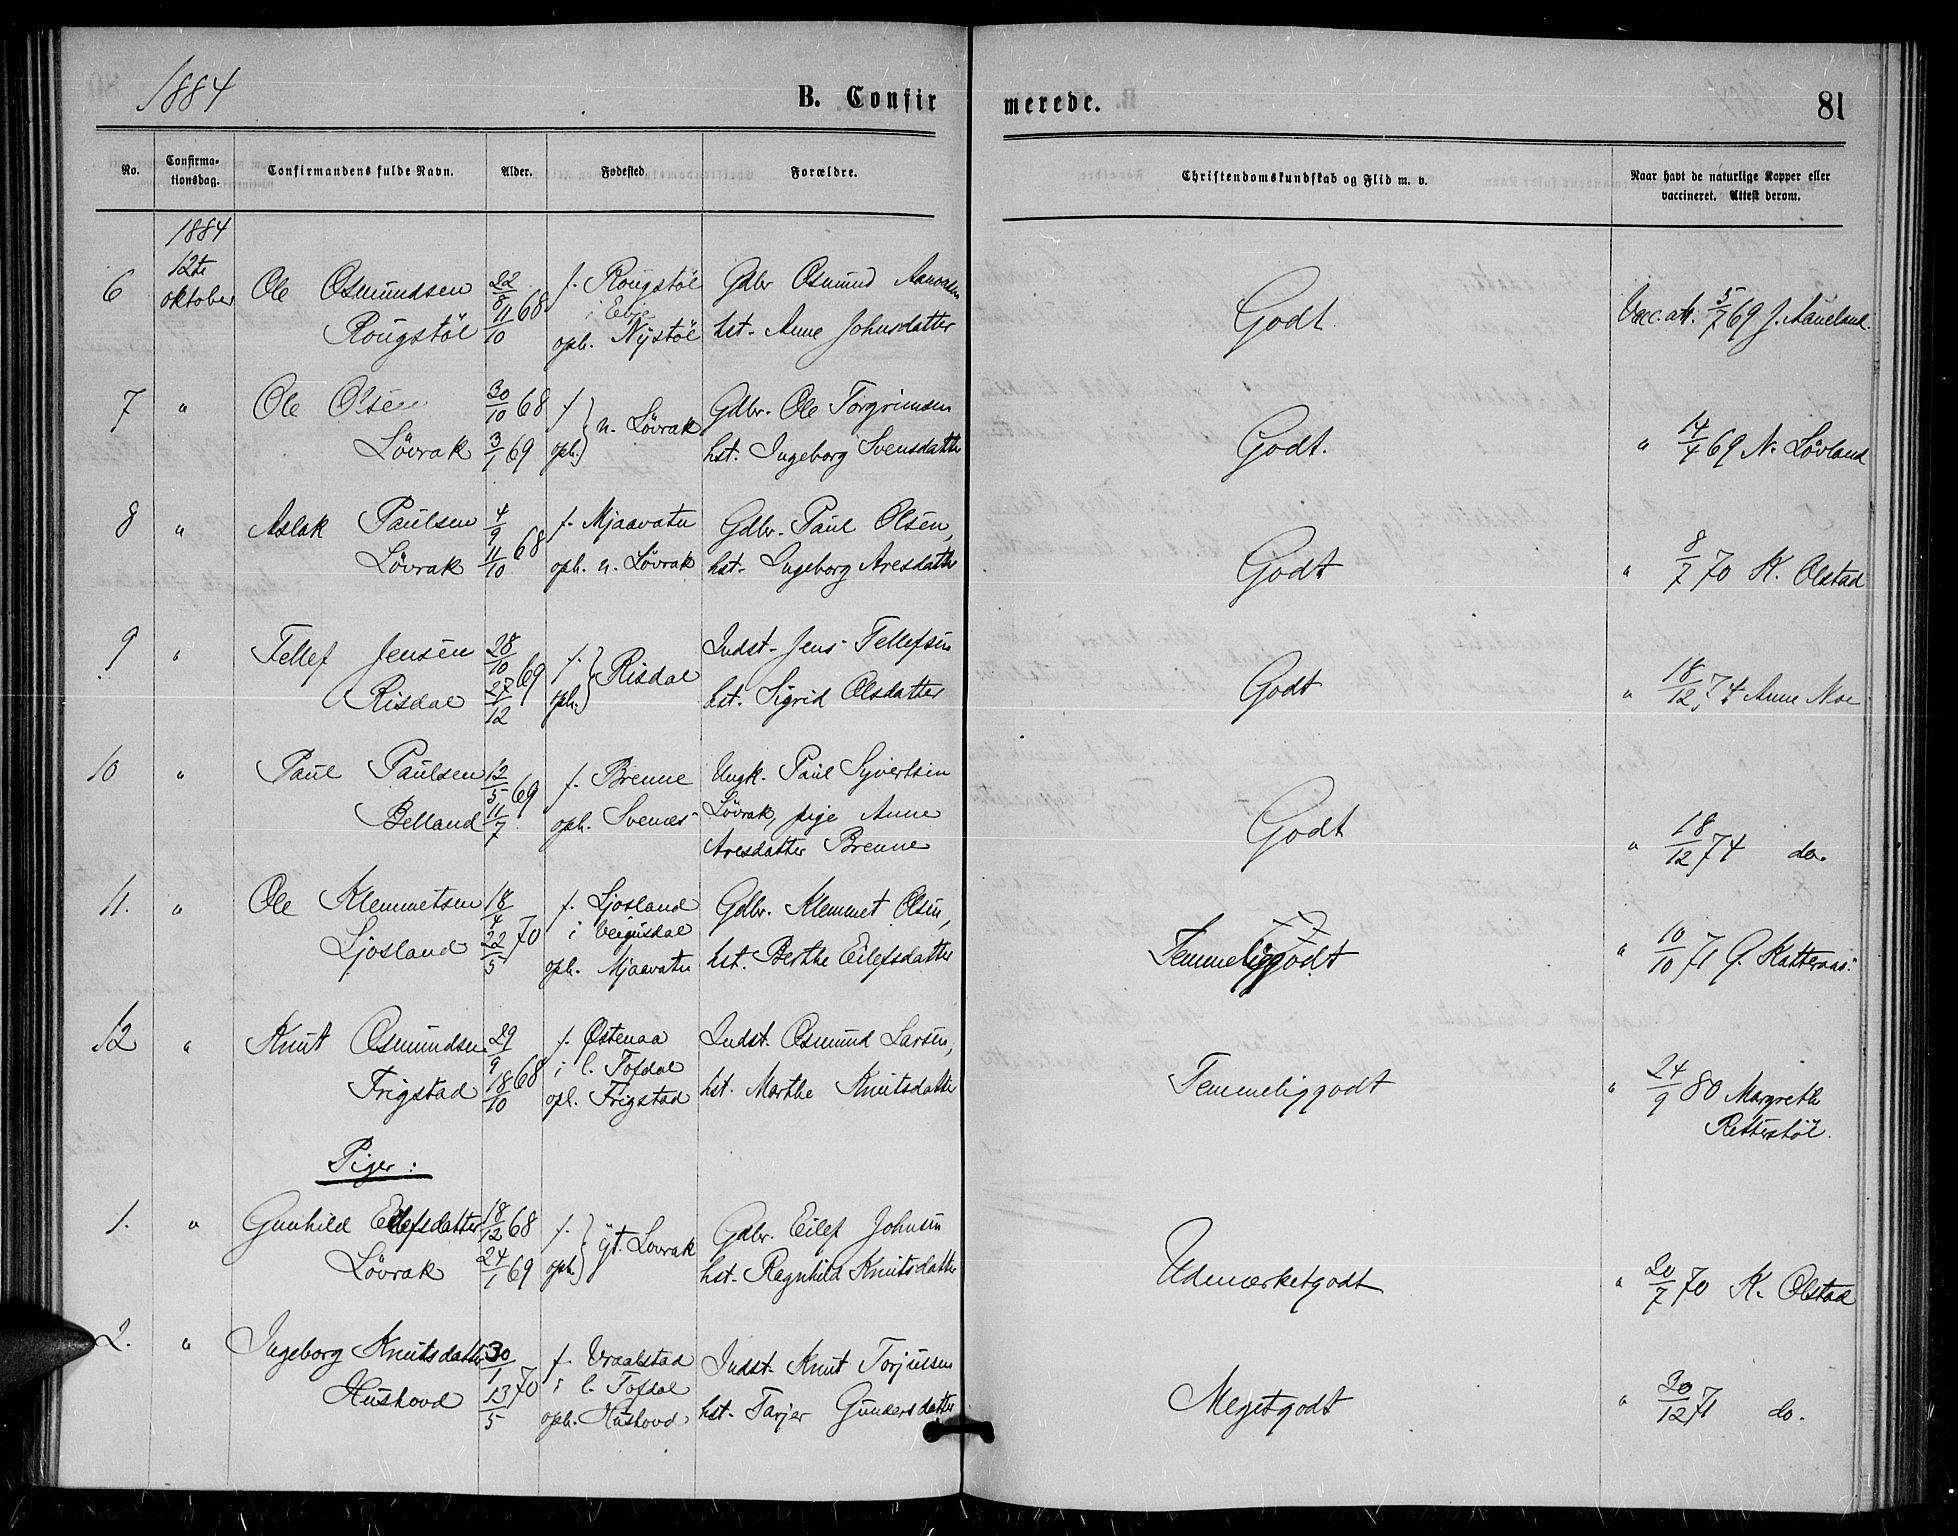 1884
B. Confirmerede.
81
No.
Confirma-
tionsdag.
Confirmandens fulde Navn.
Alder.
Fødested
Forældre.
Christendomskundskab og Flid m. v.
Naar havt de naturlige Kopper eller
vaccineret. Attest derom.
1884
12te
oktober
6 Ole Osmundsen 22/8 f. Rougstøl Gdbr Osmund
i Evje 11/10 68
Rougstöl oph. Nystöl hst. Anne Johnsdatter
Godt.
Vacc. att. 5/7 69 J. Aaneland.
7 " Ole Olsen 30/10 68 f. Gdbr. Ole Torgrimsen
Lövrak 3/1 69 oph. n. Lövrak hst. Ingeborg Svensdatter
Godt.
" 14/4 69 N. Lövland
8 " Aslak Paulsen 4/9 f. Mjaavatn Gdbr. Paul Olsen,
Lövrak 11/10 68 oph. n. Lövrak hst. Ingeborg Aresdatter
Godt
" 8/7 70 K. Olstad
9 " Tellef Jensen 28/10 69 f. Indst. Jens Tellefsen
Risdal 27/12 oph. Risdal hst. Sigrid Olsdatter
Godt
" 18/12 74 Anne Moe
10 " Paul Paulsen 12/5 69 f. Brenne Ungk. Paul Syvertsen
Belland 11/7 oph. Svenæs Lövrak, pige Anne
Aresdatter Brenne
Godt
" 18/12 74 do.
11. " Ole Klemmetsen 18/4 f. Ljosland Gdbr. Klemmet Olsen,
i Veigusdal
Ljosland 22/5 70 oph. Mjaavatn hst. Berthe Eilefsdatter
Temmeliggodt
" 10/10 71 G. Katteraas.
12 " Knut Osmundsen 29/9 f. Östenaa Indst. Osmund Larsen,
i l. Tofdal
Frigstad 18/10 68 opl. Frigstad hst. Marthe Knutsdatter
Temmeliggodt
" 24/9 80 Margrethe
Retterstöl.
Piger:
1. " Gunhild Eilefsdatter 18/12 68 f. Gdbr. Eilef Johnsen
Lövrak 24/1 69 oph. yt. Lovrak hst. Ragnhild Knutsdatter
Udmærketgodt
" 20/7 70 K. Olstad
2. " Ingeborg Knutsdatter 30/1 f. Vraalstad Indst. Knut Torjussen
i l. Tofdal
Hushovd 13/5 70 oph. Hushovd hst. Tarjer Gundersdatter
Megetgodt
" 20/12 71 do.